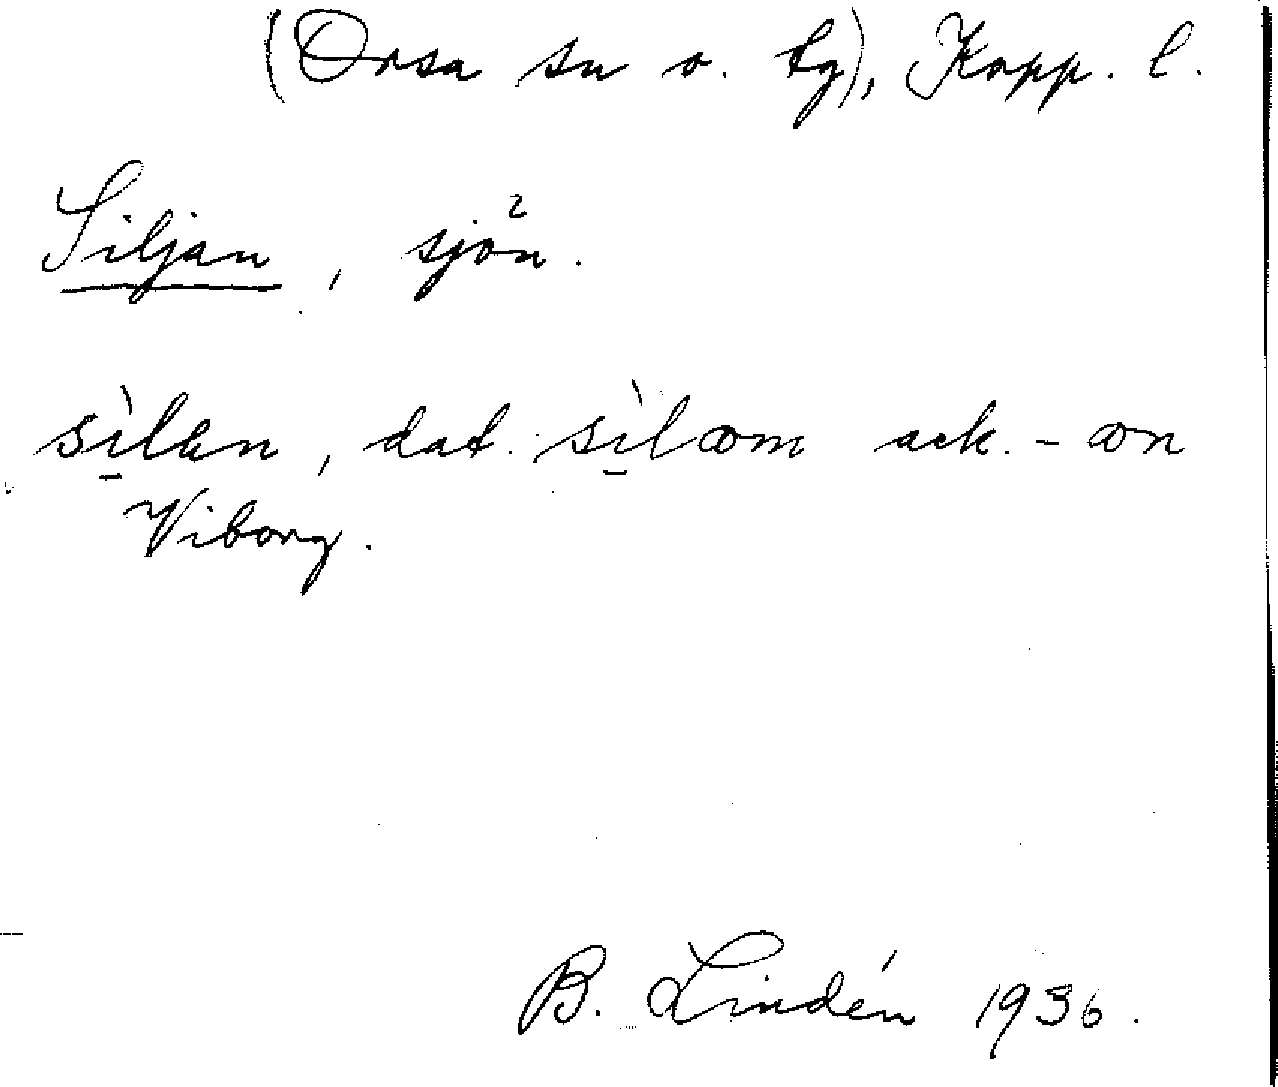 (Orsa sn o. tg), Kopp. l.
Siljan, sjön.
sìlan, dat. sìlωm ack. - ωn
Viborg.
B. Lindén 1936.